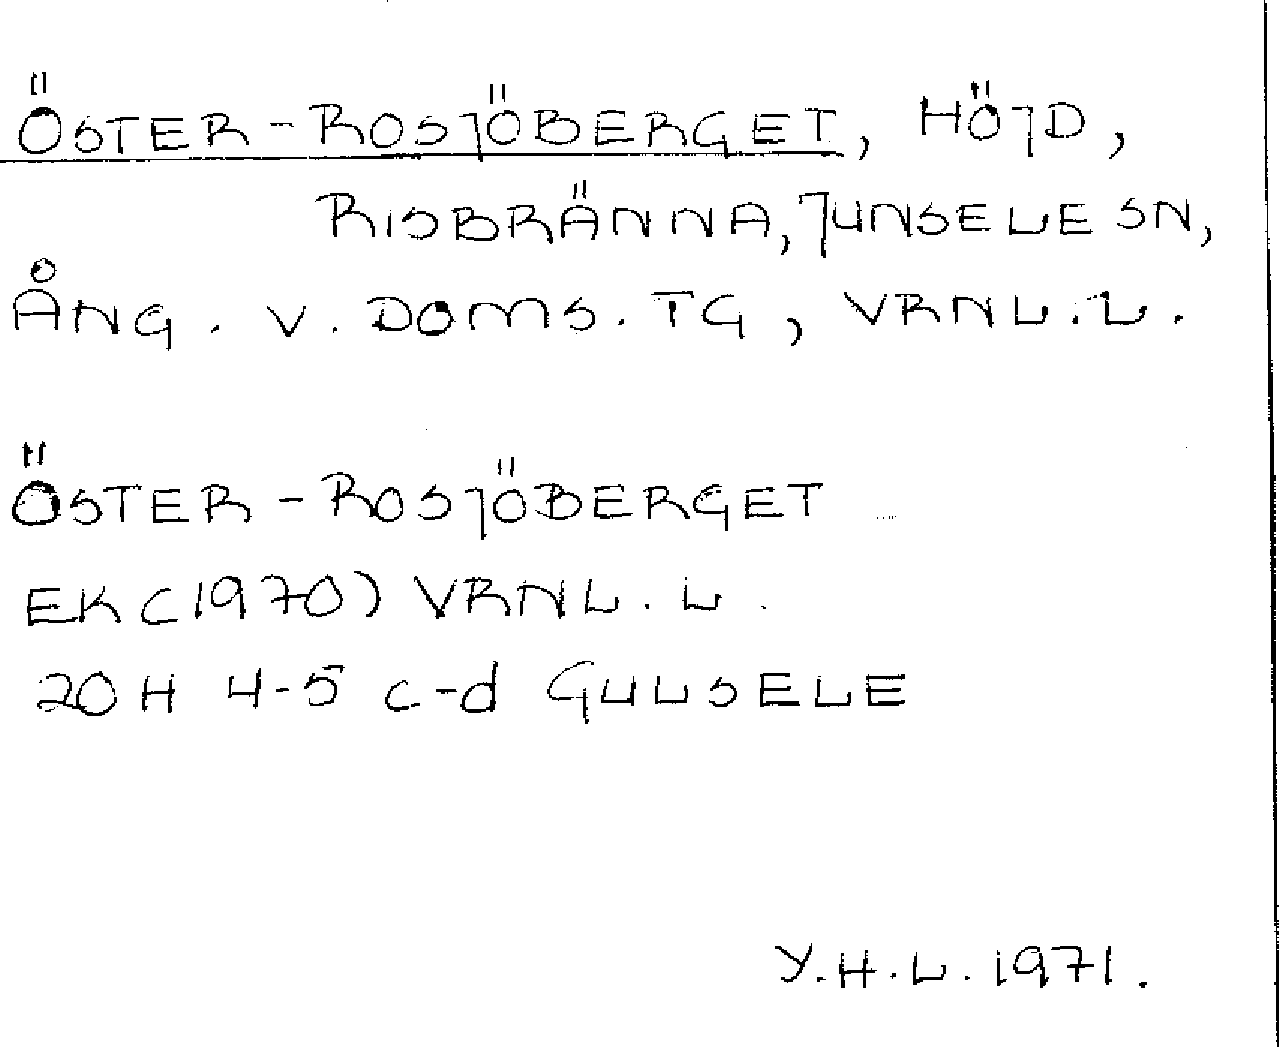 ÖSTER-ROSJÖBERGET, HÖJD,
RISBRÄNNA, JUNSELE SN,
ÅNG. V. DOMS. TG, VRNL.L.
ÖSTER-ROSJÖBERGET
EK (1970) VRNL.L.
20 H 4-5 c-d GULSELE
Y.H.L. 1971.